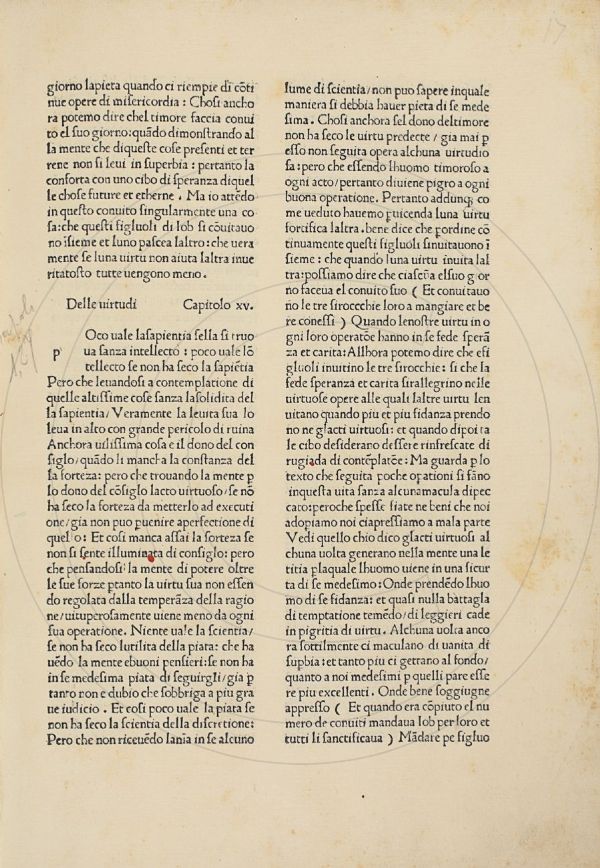 giorno lapieta quando ci riempie di cõti
nue opere di misericordia : Chosi ancho
ra potemo dire chel timore faccia conui
to el suo giorno: quãdo dimonstrando al
la mente che diqueste cose presenti et ter
rene non si leui in superbia : pertanto la
conforta con uno cibo di speranza diquel
le chose future et etherne . Ma io attẽdo
in questo conuito singularmente una co
sa: che questi figluoli di Iob si cõuitauo
no ĩsieme et luno pascea laltro: che uera
mente se luna uirtu non aiuta laltra inue
ritatosto tutte uengono meno.
Delle uirtudi Capitolo xv.
Oco uale lasapientia sella si truo
p ua sanza intellecto : poco uale lõ
tellecto se non ha seco la sapiẽtia
Pero che leuandosi a contemplatione di
quelle altissime cose sanza lasolidita del
la sapientia/ Veramente la leuita sua lo
leua in alto con grande pericolo di ruina
Anchora uilissima cosa e il dono del con
siglo/ quãdo li mancha la constanza del
la forteza: pero che trouando la mente p
lo dono del cõsiglo lacto uirtuoso/ se nõ
ha seco la forteza da metterlo ad executi
one/ gia non puo puenire aperfectione di
quello: Et cosi manca assai la forteza se
non si sente illuminata di consiglo: pero
che pensandosi la mente di potere oltre
le sue forze ptanto la uirtu sua non essen
do regolata dalla temperãza della ragio
ne/ uituperosamente uiene meno da ogni
sua operatione. Niente uale la scientia/
se non ha seco lutilita della piata: che ha
uẽdo la mente ebuoni pensieri: se non ha
in se medesima piata di seguirgli/ gia p
tanto non e dubio che sobbriga a piu gra
ue iudicio . Et cosi poco uale la piata se
non ha seco la scientia della discretione:
Pero che non riceuẽdo lanĩa in se alcuno
lume di scientia/ non puo sapere inquale
maniera si debbia hauer pieta di se mede
sima. Chosi anchora sel dono deltimore
non ha seco le uirtu predecte / gia mai p
esso non seguita opera alchuna uirtudio
sa: pero che essendo lhuomo timoroso a
ogni acto/ pertanto diuiene pigro a ogni
buona operatione. Pertanto addunq; co
me ueduto hauemo puicenda luna uirtu
fortifica laltra. bene dice che pordine cõ
tinuamente questi figluoli sinuitauono ĩ
sieme : che quando luna uirtu inuita lal
tra: possiamo dire che ciascũa elsuo gior
no faceua el conuito suo ( Et conuitauo
no le tre sirocchie loro a mangiare et be
re conessi ) Quando lenostre uirtu in o
gni loro operatõe hanno in se fede sperã
za et carita: Allhora potemo dire che efi
gluoli inuitino le tre sirocchie: si che la
fede speranza et carita sirallegrino nelle
uirtuose opere alle quali laltre uirtu len
uitano quando piu et piu fidanza prendo
no ne glacti uirtuosi: et quando dipoi ta
le cibo desiderano dessere rinfrescate di
rugiada di contẽplatõe: Ma guarda p lo
texto che seguita poche opationi si fãno
inquesta uita sanza alcunamacula dipec
cato: peroche spesse fiate ne beni che noi
adopiamo noi ciapressiamo a mala parte
Vedi quello chio dico glacti uirtuosi al
chuna uolta generano nella mente una le
titia plaquale lhuomo uiene in una sicur
ta di se medesimo: Onde prendẽdo lhuo
mo di se fidanza: et quasi nulla battagla
di temptatione temẽdo/ di leggieri cade
in pigritia di uirtu. Alchuna uolta anco
ra sottilmente ci maculano di uanita di
supbia: et tanto piu ci getrano al fondo/
quanto a noi medesimi p quelli pare esse
re piu excellenti. Onde bene soggiugne
appresso ( Et quando era cõpiuto el nu
mero de conuiti mandaua Iob per loro et
tutti li sanctificaua ) Mãdare pe figluo
17